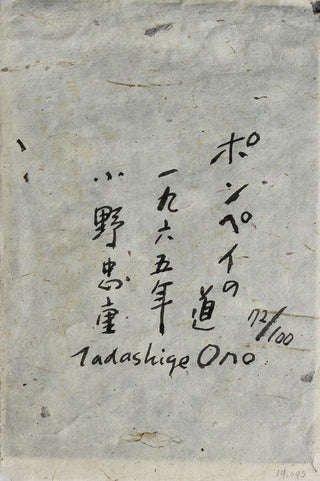 ポンペイの道
一九六五年
小野忠重
72/100
Tadashige Ono
19,093